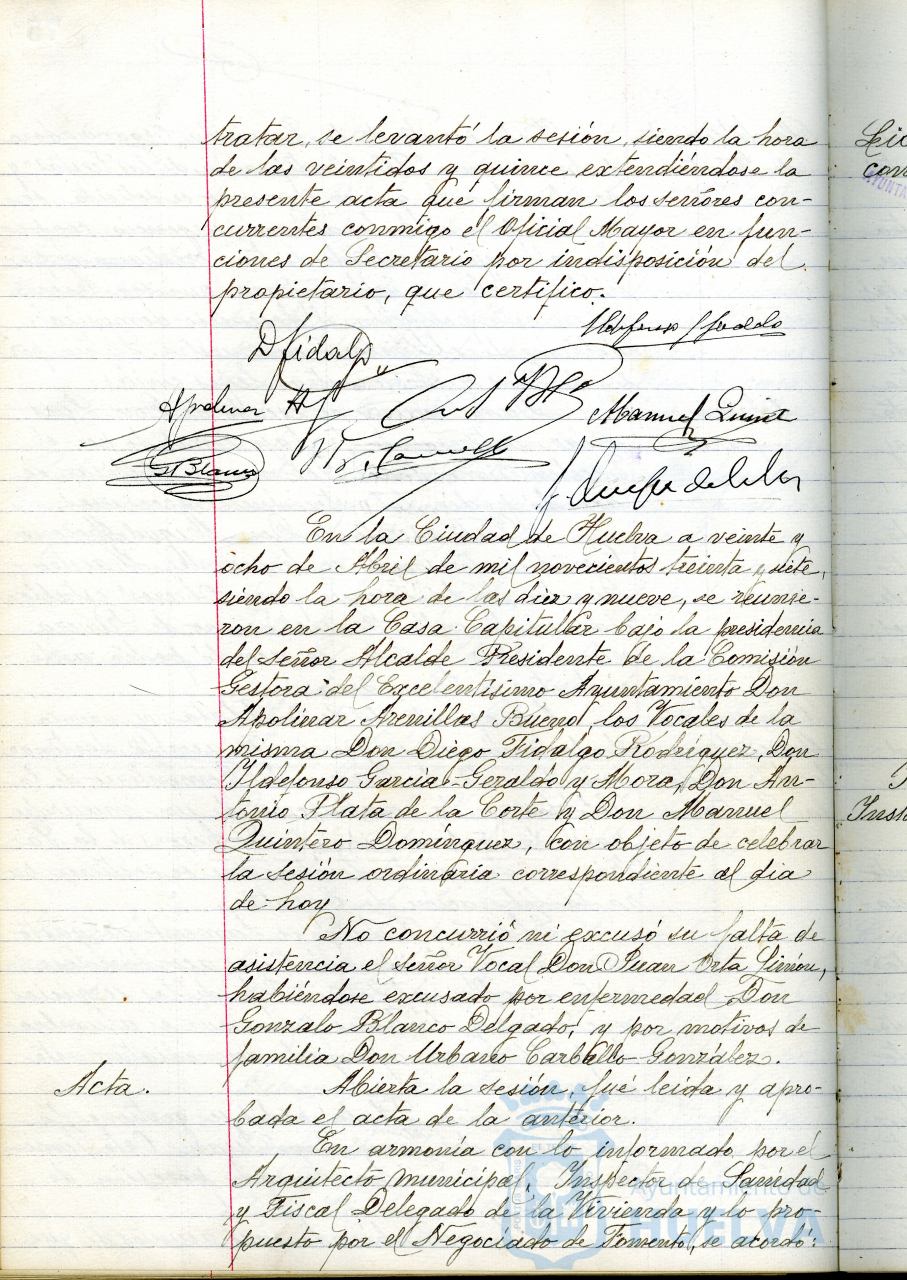 tratar, se levantó la sesión, siendo la hora
de las veintidos y quince extendiéndose la
presente acta que firman los señores con-
currentes conmigo el Oficial Mayor en fun-
ciones de Secretario por indisposición del
propietario, que certifico.
D Fidalgo
Manuel Quint
G Blanco
En la Ciudad de Huelva a veinte y
ocho de Abril de mil novecientos treinta y siete,
siendo la hora de las diez y nueve, se reunie-
ron en la Casa Capitular bajo la presidencia
del señor Alcalde Presidente de la Comisión
Gestora del Excelentísimo Ayuntamiento Don
Apolinar Arenillas Bueno, los Vocales de la
misma Don Diego Fidalgo Rodríguez, Don
Ildefonso García-Geraldo y Mora, Don An-
tonio Plata de la Corte y Don Manuel
Quintero Domínguez, con objeto de celebrar
la sesión ordinaria correspondiente al dia
de hoy
No concurrió ni excusó su falta de
asistencia el señor Vocal Don Juan Orta Simón,
habiéndose excusado por enfermedad Don
Gonzalo Blanco Delgado, y por motivos de
familia Don Urbano Carballo González.
Acta.
Abierta la sesión, fué leida y apro-
bada el acta de la anterior.
En armonía con lo informado por el
Arquitecto municipal, Inspector de Sanidad
y Fiscal Delegado de la Vivienda y lo pro-
puesto por el Negociado de Fomento, se acordó:
Ayuntamiento de
HUELVA